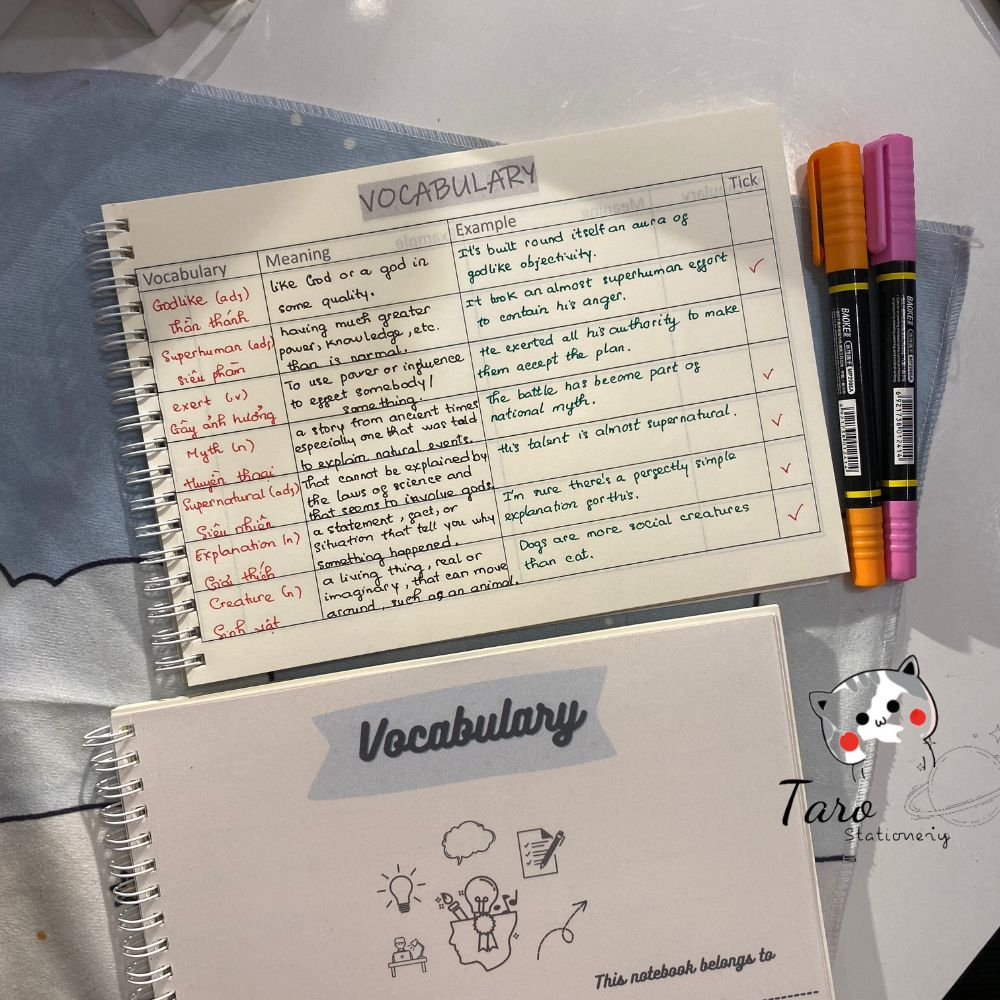 VOCABULARY
Vocabulary Meaning Example Tick
Godlike (adj)
Thần thánh
like God or a god in
some quality.
It's built round itself an aura of
godlike objectivity.
Superhuman (adj)
Siêu phàm
having much greater
power, knowledge, etc.
than is normal.
It took an almost superhuman effort
to contain his anger.
✓
exert (v)
Gây ảnh hưởng
To use power or influence
to effect somebody/
something.
He exerted all his authority to make
them accept the plan.
Myth (n)
Huyền thoại
a story from ancient times
especially one that was told
to explain natural events.
The battle has become part of
national myth.
✓
Supernatural (adj)
Siêu nhiên
That cannot be explained by
the laws of science and
that seems to involve gods.
His talent is almost supernatural.
✓
Explanation (n)
Giải thích
a statement, fact, or
situation that tell you why
something happened.
I'm sure there's a perfectly simple
explanation for this.
✓
Creature (n)
Sinh vật
a living thing, real or
imaginary, that can move
around, such as an animal.
Dogs are more social creatures
than cat.
✓
BAOKE
MP2906A
6921738072414
BAOKE
Vocabulary
This notebook belongs to
Taro
Stationery